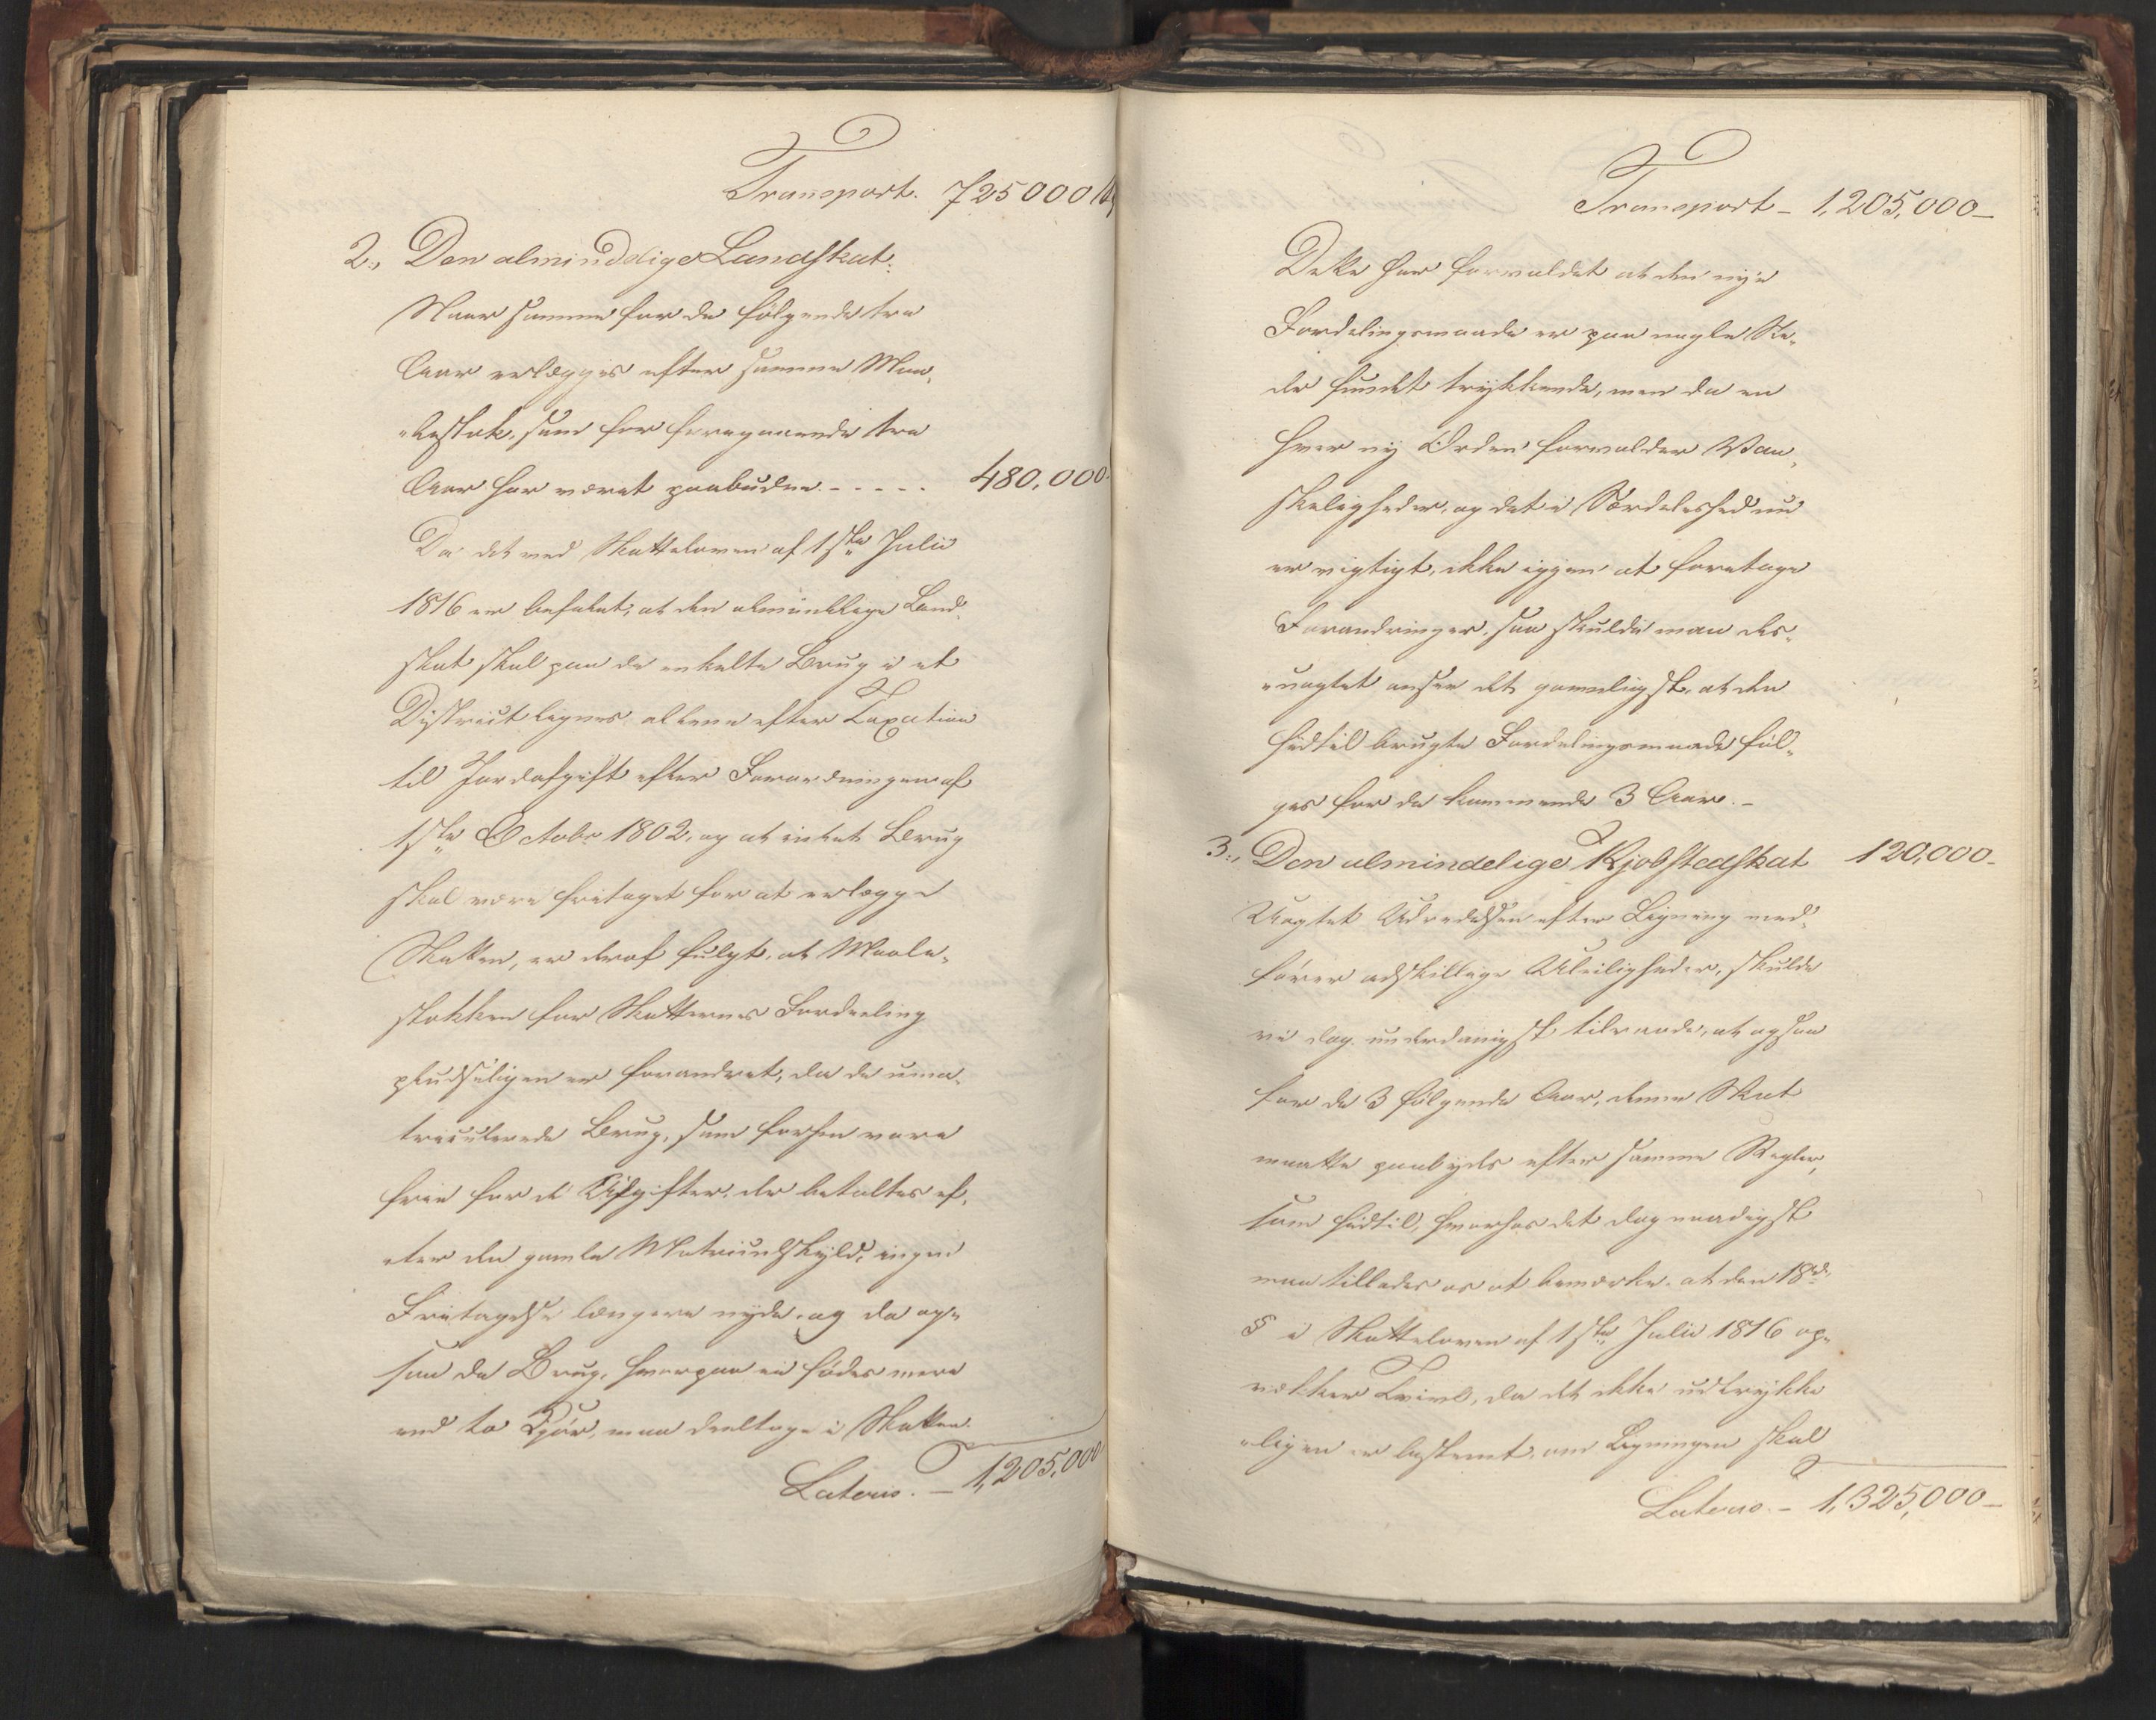 Transport. 725000
2., Den alminddelige Landskat:
Naar samme for de følgende tre
Aar erlægges efter samme Maa-
lestok, som for foregaaende tre
Aar har været paabuden. - - - - - 480,000.
Da det ved Skatteloven af 1ste Julii
1816 er befalet, at den almindelige Land-
skat skal paa de enkelte Brug i et
District lignes allene efter Taxation
til Jordafgift efter Forordningen af
1ste Octobr 1802, og at intet Brug
skal være fritaget for at erlægge
Skatten, er deraf fulgt, at Maale-
stokken for Skatternes Fordeeling
pludseligen er forandret, da de uma-
triculerede Brug, som forhen vare
frie for de Afgifter, der betaltes ef-
ter den gamle Matriculskyld, ingen
Fritagelse længere nyde, og da og-
saa de Brug, hvorpaa ei fødes mere
end to Kjør, maa deeltage i Skatten.
Lateris. - 1,205,000
Transport - 1,205,000 -
Dette har forvoldet at den nye
Fordelingsmaade er paa nogle Ste-
der fundet trykkende, men da en
hver ny Orden forvolder Van-
skeligheder, og det i Særdeleshed nu
er vigtigt, ikke iggjen at foretage
Forandringer, saa skulde man des-
uagtet ansee det gavnligst, at den
hidtil brugte Fordelingsmaade føl-
ges for de kommende 3 Aar. -
3., Den almindelige Kjøbstedskat 120,000 -
Uagtet Udredelsen efter Ligning med-
fører adskillige Uleiligheder, skulde
vi dog underdanigst tilraade, at ogsaa
for de 3 følgende Aar, denne Skat
maatte paabydes efter samme Regler,
som hidtil, hvorhos det dog naadigst
maa tillades os at bemærke, at den 18de
§ i Skatteloven af 1ste Julii 1816 op-
vækker Tvivl, da det ikke udtrykke-
ligen er bestemt, om Ligningen skal
Lateris. - 1,325,000 -